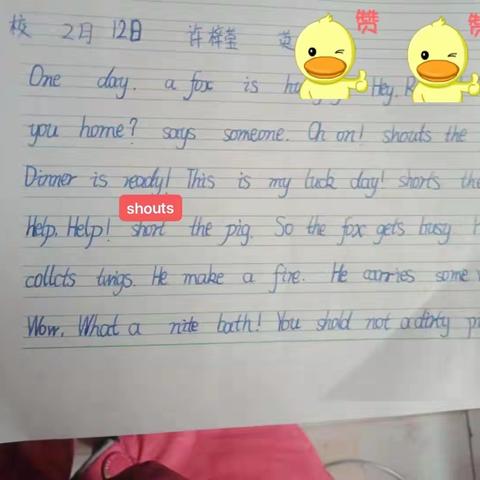 校 2月 12日 许梓莹 英 赞
One day. a fox is Hey.
you home? says someone. Oh on! shouts the
Dinner is ready! This is my luck day! shorts the
shouts
Help. Help! short the pig. So the fox gets busy
collcts twigs. He make a fire. He carries some
Wow. What a nite bath! You shold not a dirty